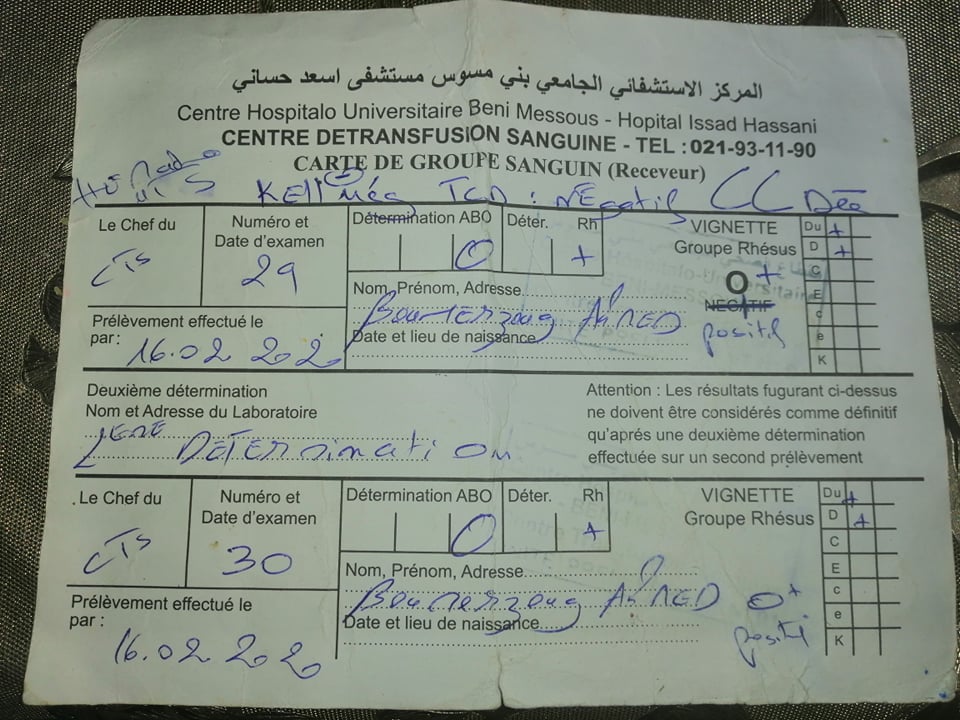 المركز الاستشفائي الجامعي بني مسوس مستشفى اسعد حساني
Centre Hospitalo Universitaire Beni Messous - Hopital Issad Hassani
CENTRE DETRANSFUSION SANGUINE - TEL : 021-93-11-90
CARTE DE GROUPE SANGUIN (Receveur)
KEll (-) Nég TCD : NEgatif
Le Chef du
CTS
Numéro et
Date d'examen
29
Détermination ABO
O
Déter. Rh
+
VIGNETTE
Groupe Rhésus
O +
NEGATIF
positif
Du +
D +
C
E
c
e
K
Nom, Prénom, Adresse
Boumerzoug AhMED
Date et lieu de naissance
Prélèvement effectué le
par :
16.02 2020
Deuxième détermination
Nom et Adresse du Laboratoire
2EME DETErmimatiOn
Attention : Les résultats fugurant ci-dessus
ne doivent être considérés comme définitif
qu'aprés une deuxième détermination
effectuée sur un second prélèvement
Le Chef du
CTS
Numéro et
Date d'examen
30
Détermination ABO
O
Déter. Rh
+
VIGNETTE
Groupe Rhésus
Du +
D +
C
E
c
e
K
Nom, Prénom, Adresse
Boumerzoug AhMED O+
positif
Date et lieu de naissance
Prélèvement effectué le
par :
16.02.2020